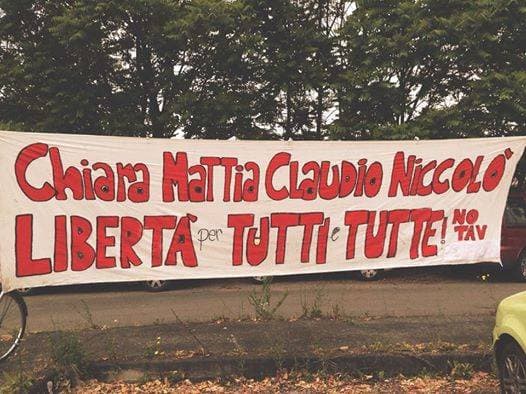 Chiara Mattia Claudio Niccolò
LIBERTÀ per TUTTI e TUTTE!
NO
TAV